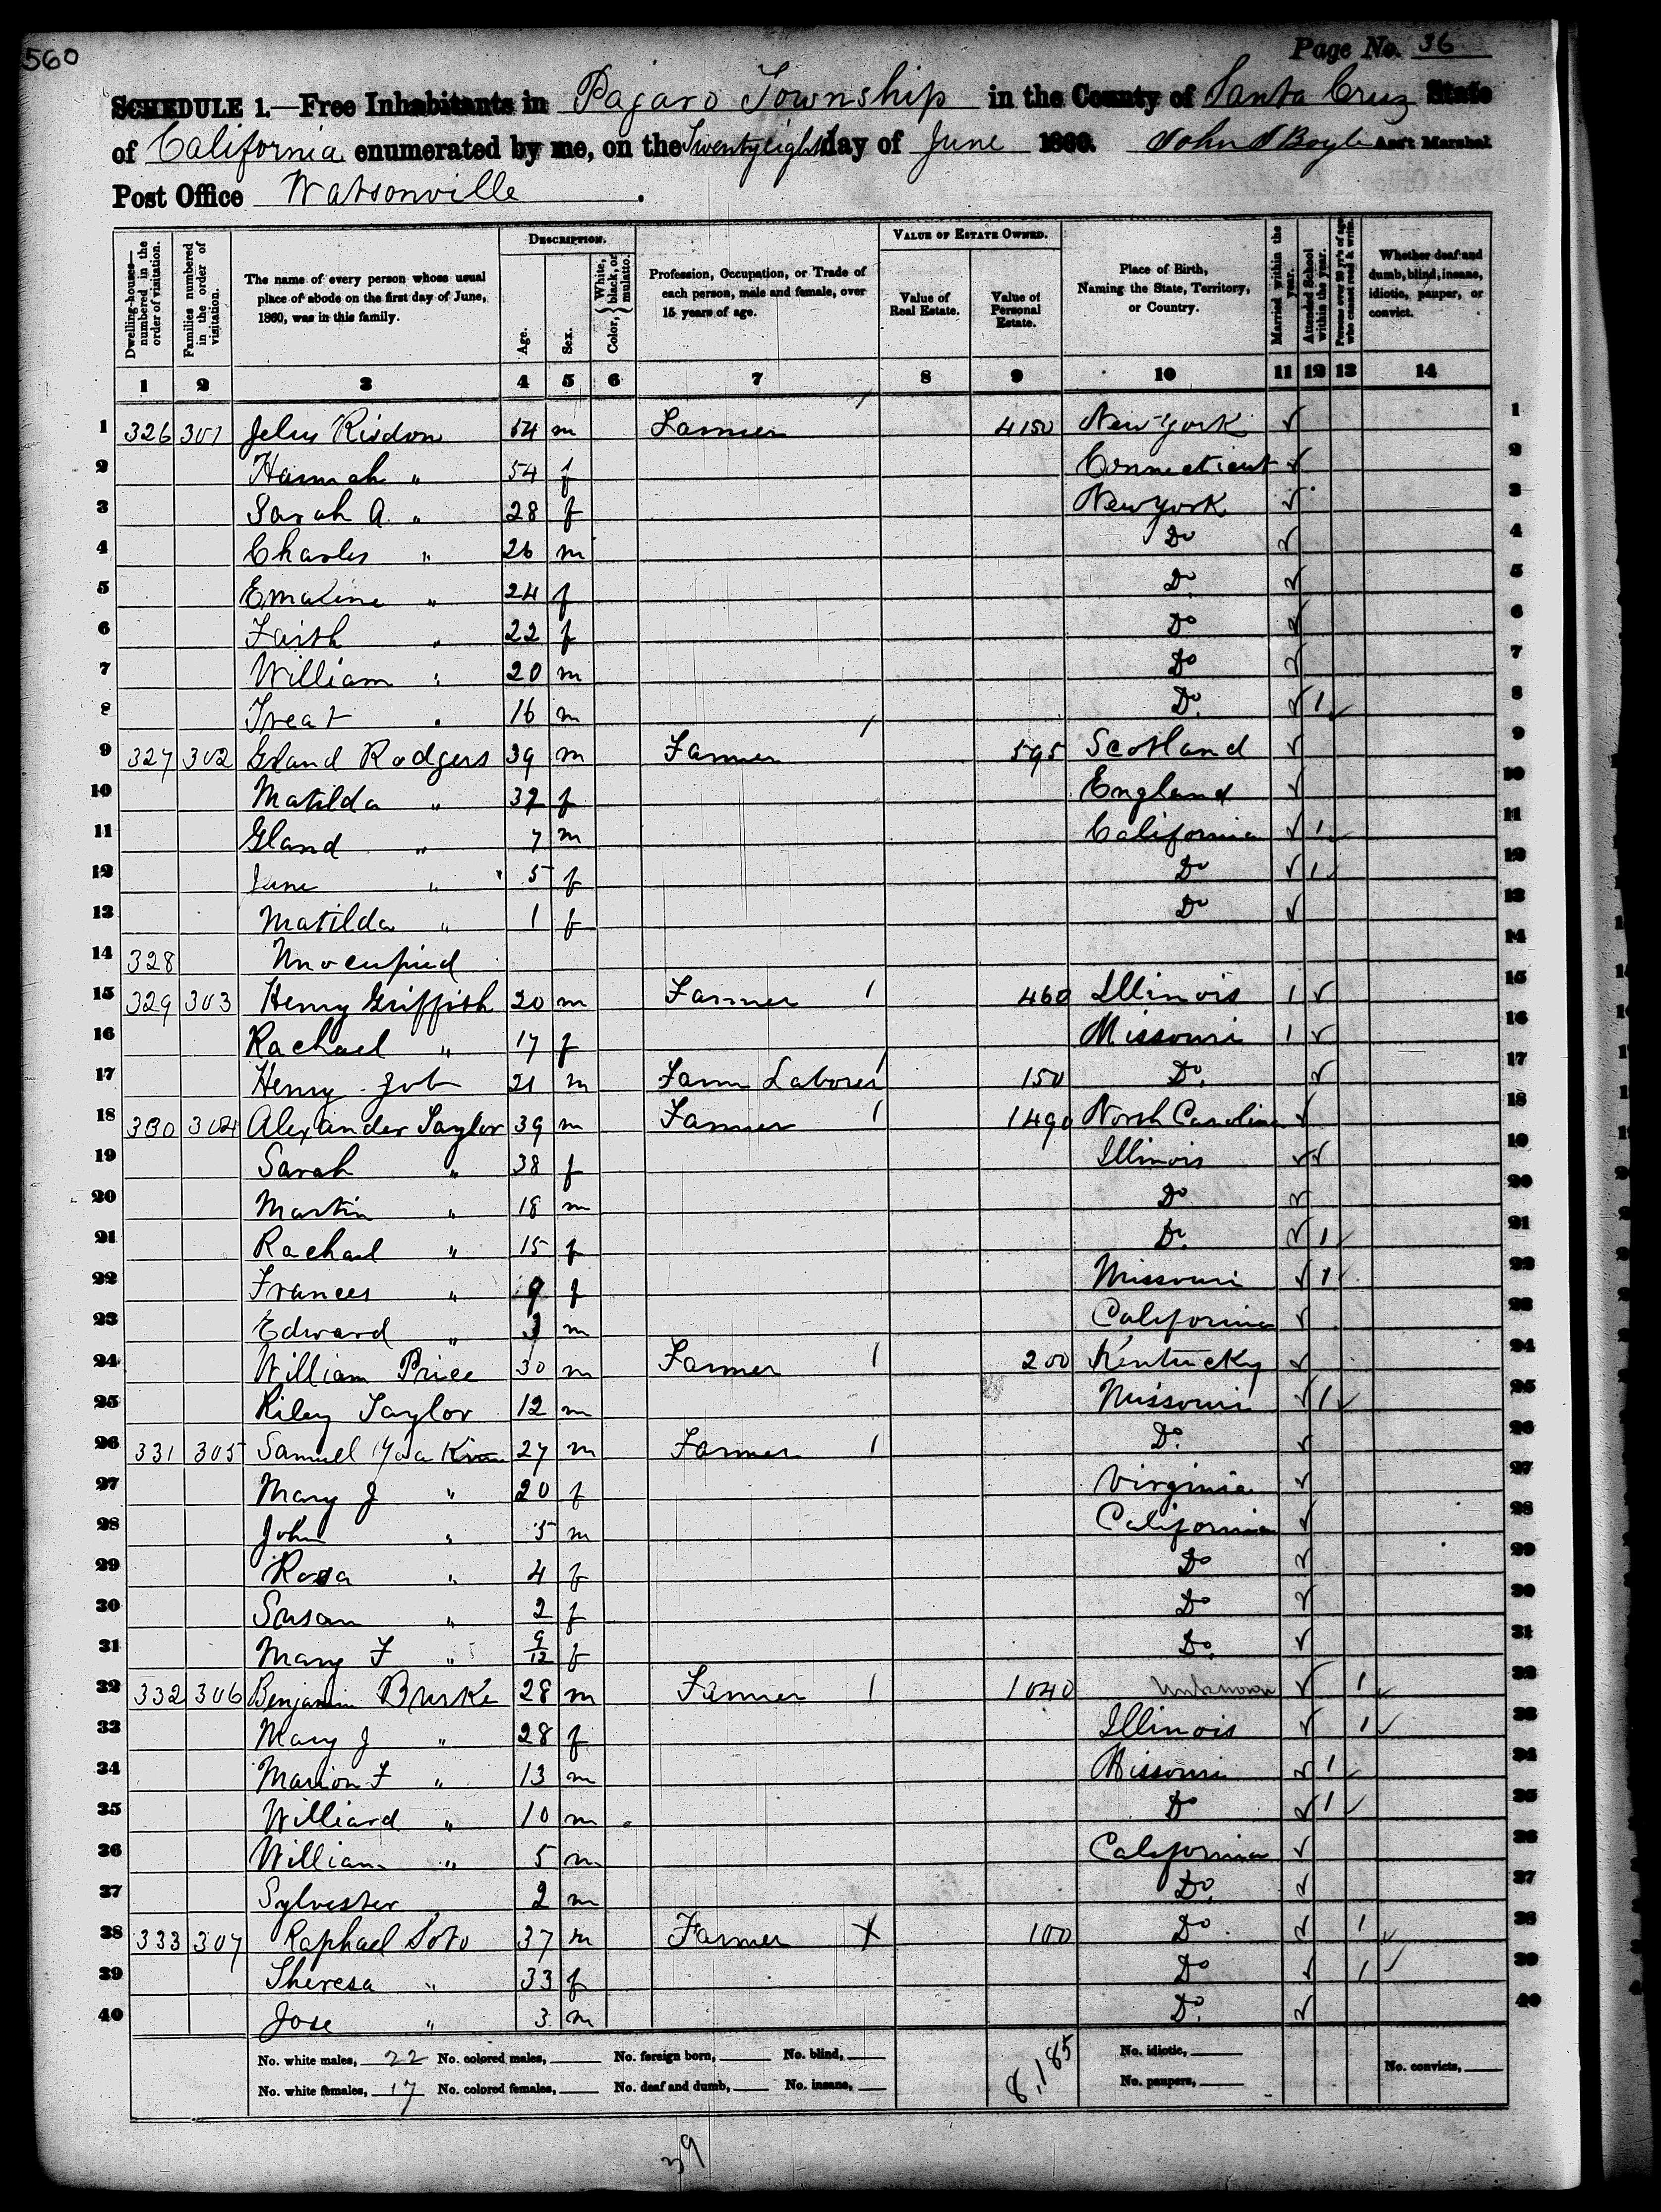 560
Page No. 36
SCHEDULE 1.—Free Inhabitants in Pajaro Township in the County of Santa Cruz State
of California enumerated by me, on the Twentyeighth day of June 1860. John Boyle Ass't Marshal
Post Office Watsonville.
Dwelling-houses—numbered in the order of visitation.
Families numbered in the order of visitation.
The name of every person whose usual place of abode on the first day of June, 1860, was in this family.
DESCRIPTION.
Age.
Sex.
Color, { White, black, or mulatto.
Profession, Occupation, or Trade of each person, male and female, over 15 years of age.
VALUE OF ESTATE OWNED.
Value of Real Estate.
Value of Personal Estate.
Place of Birth, Naming the State, Territory, or Country.
Married within the year.
Attended School within the year.
Persons over 20 y'rs of age who cannot read & write.
Whether deaf and dumb, blind, insane, idiotic, pauper, or convict.
1 2 3 4 5 6 7 8 9 10 11 12 13 14
1 326 301 Jehu Risdon 54 m Farmer / 4150 New York ✓ 1
2 Hannah " 54 f Connecticut ✓ 2
3 Sarah A. " 28 f New York ✓ 3
4 Charles " 26 m Do ✓ 4
5 Emaline " 24 f Do ✓ 5
6 Faith " 22 f Do ✓ 6
7 William " 20 m Do ✓ 7
8 Treat " 16 m Do ✓ 1 ✓ 8
9 327 302 Gland Rodgers 39 m Farmer / 595 Scotland ✓ 9
10 Matilda " 37 f England ✓ 10
11 Gland " 7 m California ✓ 1 ✓ 11
12 Jane " 5 f Do ✓ 1 ✓ 12
13 Matilda " 1 f Do ✓ 13
14 328 Unocupied 14
15 329 303 Henry Griffith 20 m Farmer 1 460 Illinois 1 ✓ 15
16 Rachael " 17 f Missouri 1 ✓ 16
17 Henry Job 21 m Farm Laborer 1 150 Do. ✓ 17
18 330 304 Alexander Taylor 39 m Farmer 1 1490 North Carolina ✓ 18
19 Sarah " 38 f Illinois ✓ ✓ 19
20 Martin " 18 m Do ✓ 20
21 Rachael " 15 f Do. ✓ 1 ✓ 21
22 Frances " 9 f Missouri ✓ 1 ✓ 22
23 Edward " 3 m California ✓ 23
24 William Price 30 m Farmer 1 200 Kentucky ✓ 24
25 Riley Taylor 12 m Missouri ✓ 1 ✓ 25
26 331 305 Samuel 27 m Farmer 1 Do. ✓ 26
27 Mary J " 20 f Virginia ✓ 27
28 John " 5 m California ✓ 28
29 Rosa " 4 f Do ✓ 29
30 Susan " 2 f Do ✓ 30
31 Mary F " 9/12 f Do. ✓ 31
32 332 306 Benjamin Burke 28 m Farmer 1 1040 Unknown ✓ 1 ✓ 32
33 Mary J " 28 f Illinois ✓ 1 ✓ 33
34 Marion F " 13 m Missouri ✓ 1 ✓ 34
35 Williard " 10 m Do ✓ 1 ✓ 35
36 William " 5 m California ✓ 36
37 Sylvester " 2 m Do. ✓ 37
38 333 307 Raphael Soto 37 m Farmer X 100 Do ✓ 1 ✓ 38
39 Theresa " 33 f Do ✓ 1 ✓ 39
40 Jose " 3 m Do. ✓ 40
No. white males, 22 No. colored males, No. foreign born, No. blind, No. idiotic,
No. white females, 17 No. colored females, No. deaf and dumb, No. insane, 8,185 No. paupers, No. convicts,
39